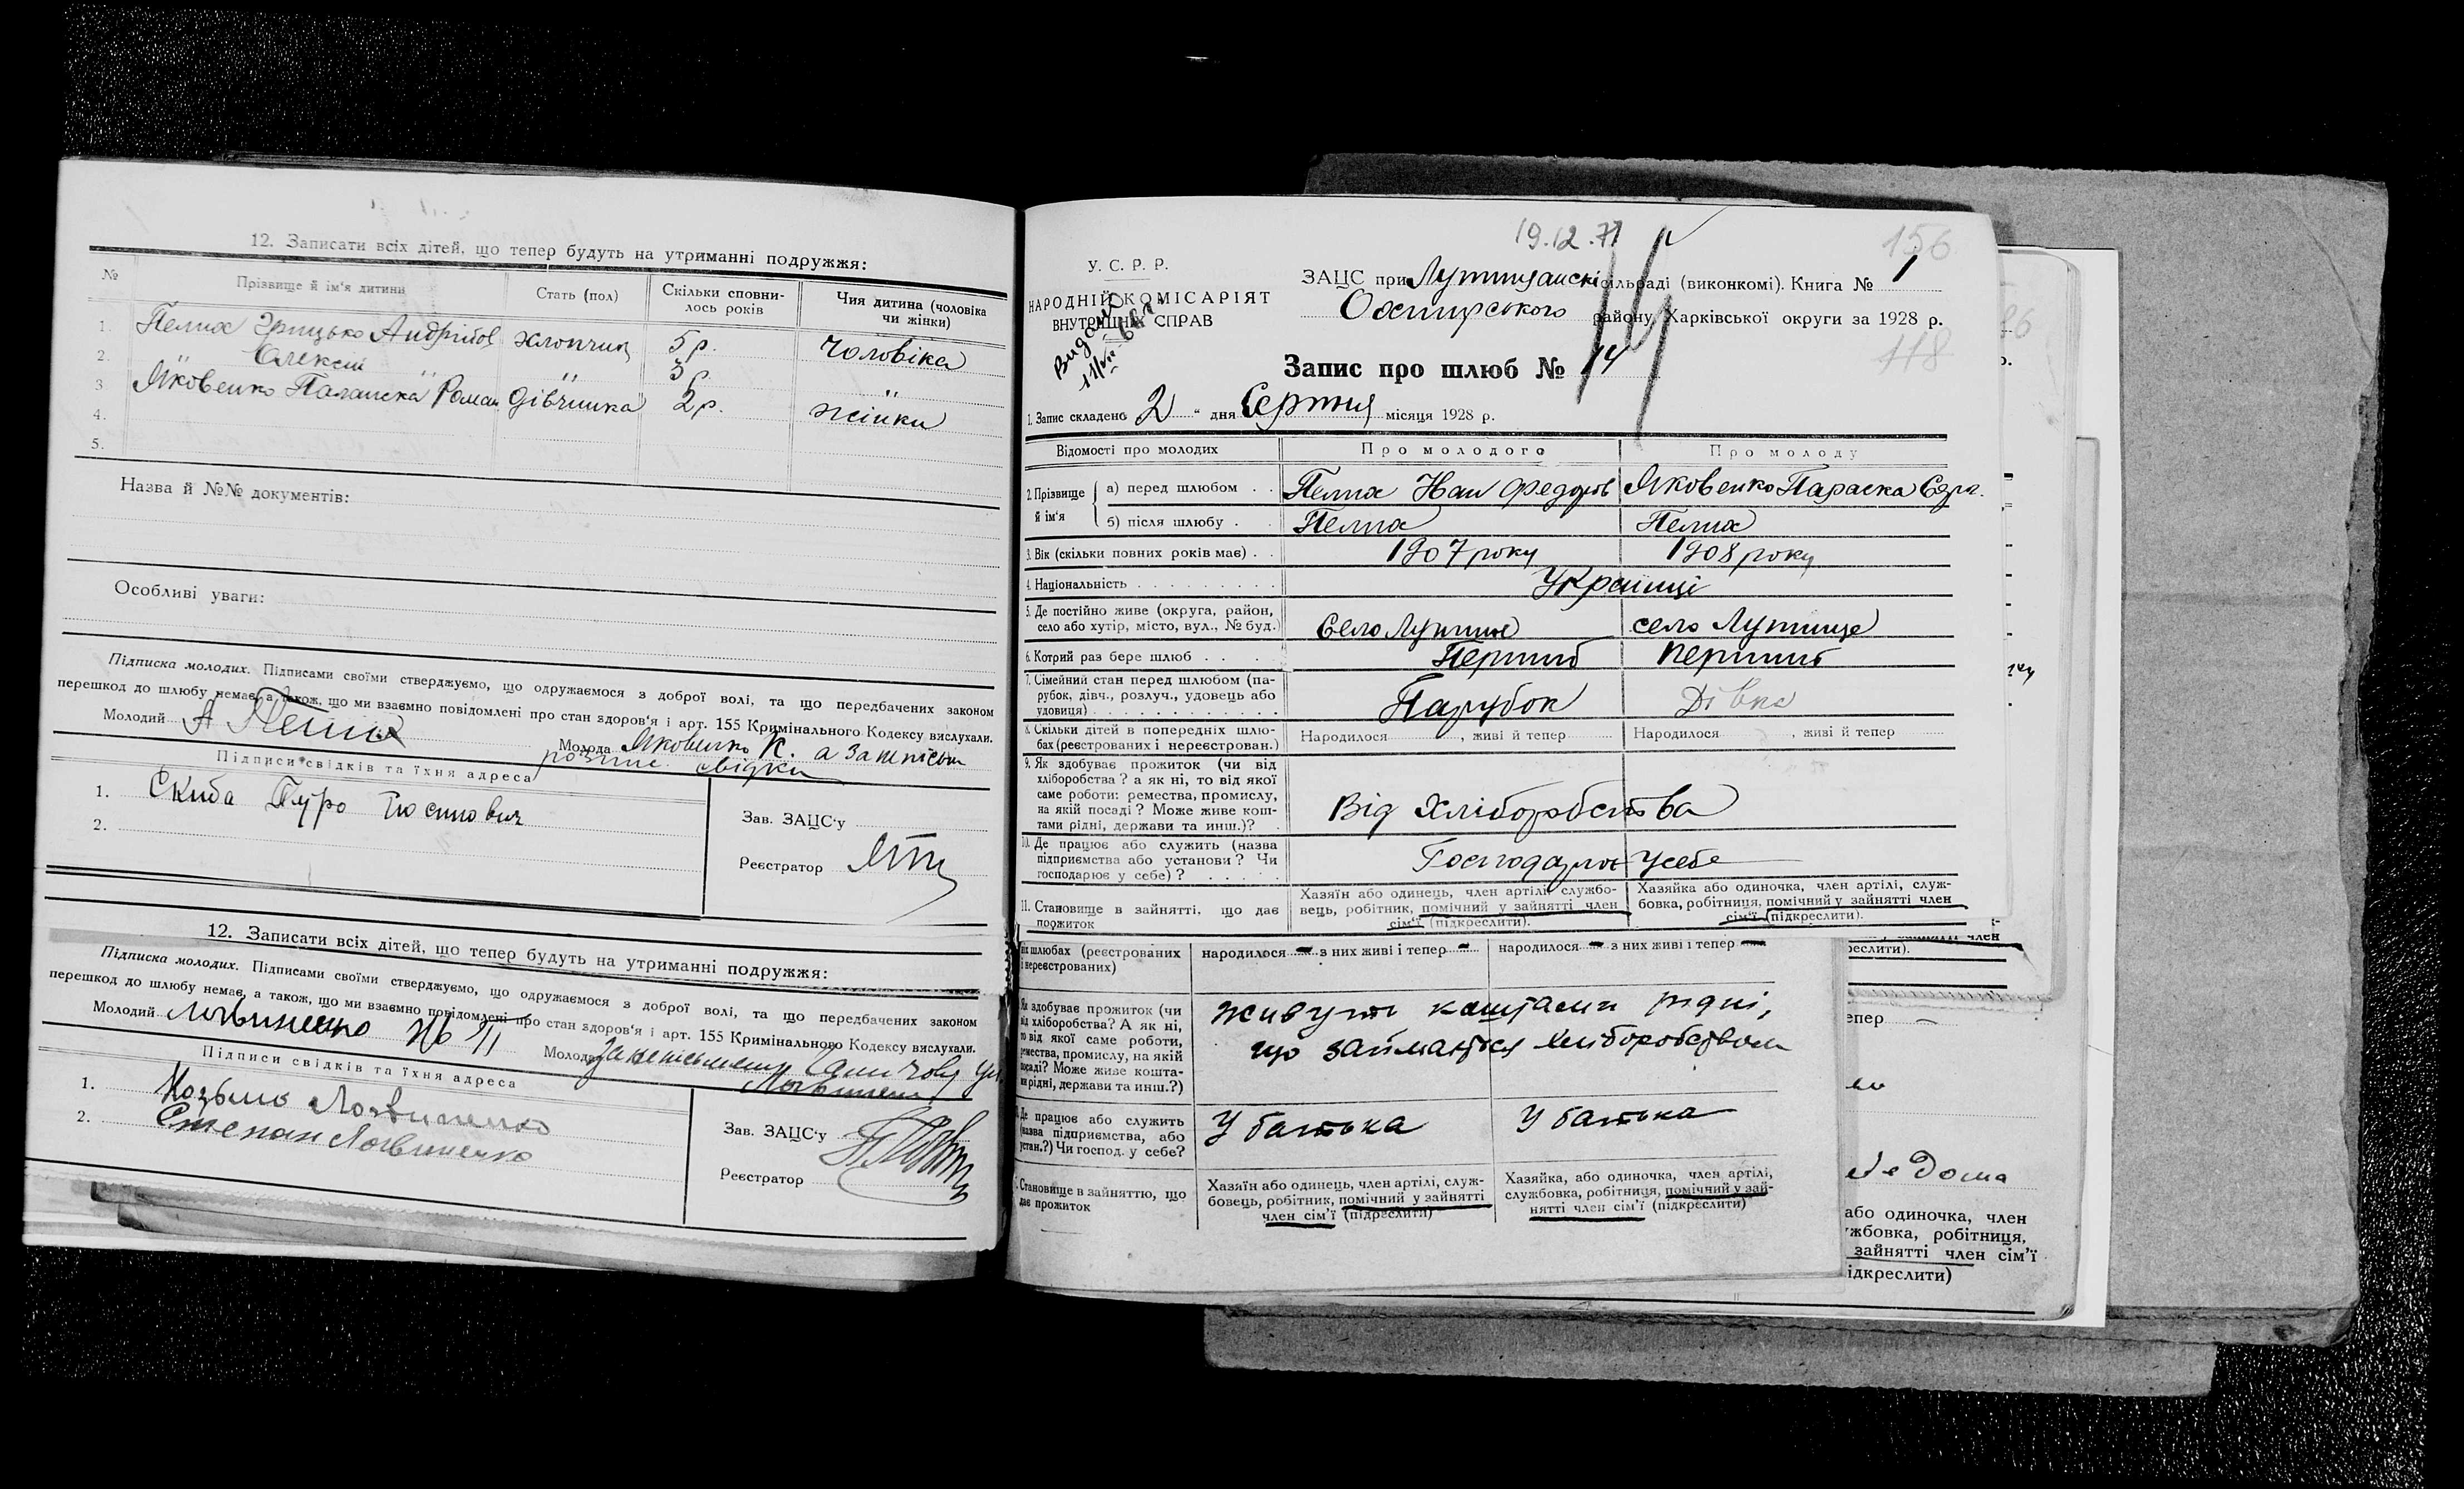 12. Записати всіх дітей, що тепер будуть на утриманні подружжя:
№ Прізвище й ім'я дитини Стать (пол) Скільки сповнилось років Чия дитина (чоловіка чи жінки)
1. Пелих Грицько Андрійов хлопчик 5 р. чоловіка
2. Олексій " " " 3 р. "
3 Яковенко Палашка Роман дівчинка 2 р. жінки
4.
5.
Назва й №№ документів:
Особливі уваги:
Підписка молодих. Підписами своїми стверджуємо, що одружаємося з доброї волі, та що передбачених законом
перешкод до шлюбу немає, а також, що ми взаємно повідомлені про стан здоров'я і арт. 155 Кримінального Кодексу вислухали.
Молодий А Пелих Молода Яковенко К. а за
свідки
Підписи свідків та їхня адреса
1. Скиба
2.
Зав. ЗАЦС'у
Реєстратор
12. Записати всіх дітей, що тепер будуть на утриманні подружжя:
Підписка молодих. Підписами своїми стверджуємо, що одружаємося з доброї волі, та що передбачених законом
перешкод до шлюбу немає, а також, що ми взаємно повідомлені про стан здоров'я і арт. 155 Кримінального Кодексу вислухали.
Молодий Логвиненко Молода
Підписи свідків та їхня адреса
1. Козьма Логвиненко
2. Степан Логвиненко
Зав. ЗАЦС'у
Реєстратор
19.12.71
156
У. С. Р. Р.
НАРОДНІЙ КОМІСАРІЯТ
ВНУТРІШНІХ СПРАВ
Видано
ЗАЦС при Лутищанскі сільраді (виконкомі). Книга № 1
Охтирського району, Харківської округи за 1928 р.
118
Запис про шлюб № 14
1. Запис складено 2 " дня Серпня місяця 1928 р.
Відомості про молодих Про молодого Про молоду
2. Прізвище й ім'я
а) перед шлюбом . . Пелих Иван Федоров Яковенко Параска
б) після шлюбу . Пелих Пелих
3. Вік (скільки повних років має) . . 1907 року 1908 року
4. Національність . . . . . . . . . Україці
5. Де постійно живе (округа, район, село або хутір, місто, вул., № буд.) Село Лутище село Лутище
6. Котрий раз бере шлюб . . . Перший перший
7. Сімейний стан перед шлюбом (парубок, дівч., розлуч., удовець або удовиця) . . . Парубок Дівка
8. Скільки дітей в попередніх шлюбах (реєстрованих і нереєстрован.) Народилося , живі й тепер Народилося , живі й тепер
9. Як здобуває прожиток (чи від хліборобства? а як ні, то від якої саме роботи: ремества, промислу, на якій посаді? Може живе коштами рідні, держави та инш.)? Від Хліборобства
10. Де працює або служить (назва підприємства або установи? Чи господарює у себе)? . . . . . Господарює усебе
11. Становище в зайнятті, що дає прожиток Хазяїн або одинець, член артілі, службовець, робітник, помічний у зайнятті член сім'ї (підкреслити). Хазяйка або одиночка, член артілі, службовка, робітниця, помічний у зайнятті член сім'ї (підкреслити).
них шлюбах (реєстрованих і нереєстрованих) народилося - з них живі і тепер - народилося - з них живі і тепер -
Як здобуває прожиток (чи від хліборобства? А як ні, то від якої саме роботи, ремества, промислу, на якій посаді? Може живе коштами рідні, держави та инш.?) живуть коштами рідні,
що займається хліборобством
Де працює або служить (назва підприємства, або устан.?) Чи господ. у себе? У батька У батька
Становище в зайняттю, що дає прожиток Хазяїн або одинець, член артілі, службовець, робітник, помічний у зайнятті член сім'ї (підреслити) Хазяйка, або одиночка, член артілі, службовка, робітниця, помічний у зайнятті член сім'ї (підкреслити)
еслити).
епер —
дома
або одиночка, член
жбовка, робітниця,
зайнятті член сім'ї
ідкреслити)